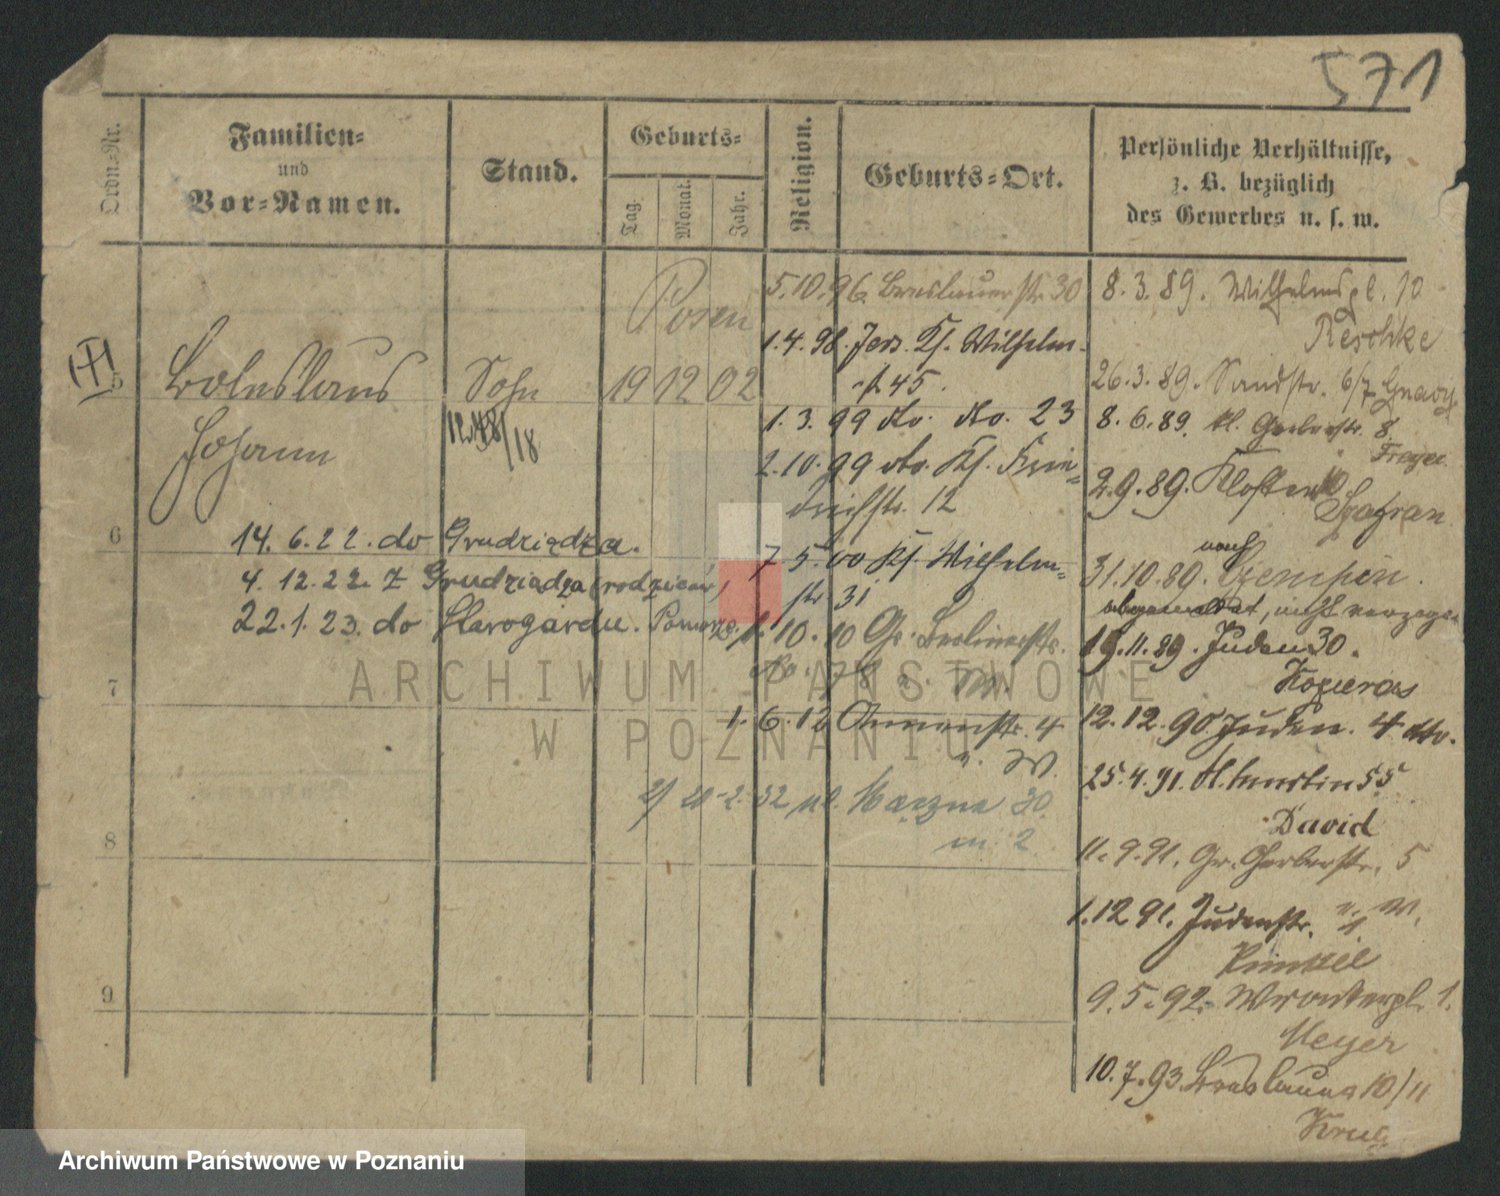 571
Ordn.-Nr.
Familien-
und
Vor-Namen.
Stand.
Geburts-
Tag.
Monat.
Jahr.
Religion.
Geburts-Ort.
Persönliche Verhältnisse,
z. B. bezüglich
des Gewerbes u. s. w.
5
Boleslaus
Johann
Sohn
19 12 02
Posen
14. 6. 22. do Grudziądza.
4. 12. 22. z Grudziądza (rodziców)
22. 1. 23. do Starogardu. Pomorze.
6
7
8
9
5. 10. 96. Breslauerstr. 30
1. 4. 98. Jers. Ks. Wilhelm-
str. 45.
1. 3. 99 do. do. 23
2. 10. 99 do. Ks. Frie-
drichstr. 12
7 5. 00 Ks. Wilhelm-
str 31
1. 10. 10 Gr. Berlinerstr.
No. 78
1. 6. 12 4
W.
20. 2. 32 ul. 30
m. 2
8. 3. 89. Wilhelmspl. 10
Reschke
26. 3. 89. Sandstr. 6/7
8. 6. 89. kl. Gerberstr. 8
Freyer
2. 9. 89. Kloster
Szafran
31. 10. 89. nach Czempin.
abgemeldet, nicht verzogen
19. 11. 89. Juden 30.
12. 12. 90 Juden. 4 dto.
25. 4. 91. St. Martin 55
David
11. 9. 91. Gr. Gerberstr. 5
1. 12 91. Judenstr.
9. 5. 92. Wronkerpl. 1.
Meyer
10. 7. 93. Breslauer 10/11
Krug
ARCHIWUM PAŃSTWOWE
W POZNANIU
Archiwum Państwowe w Poznaniu